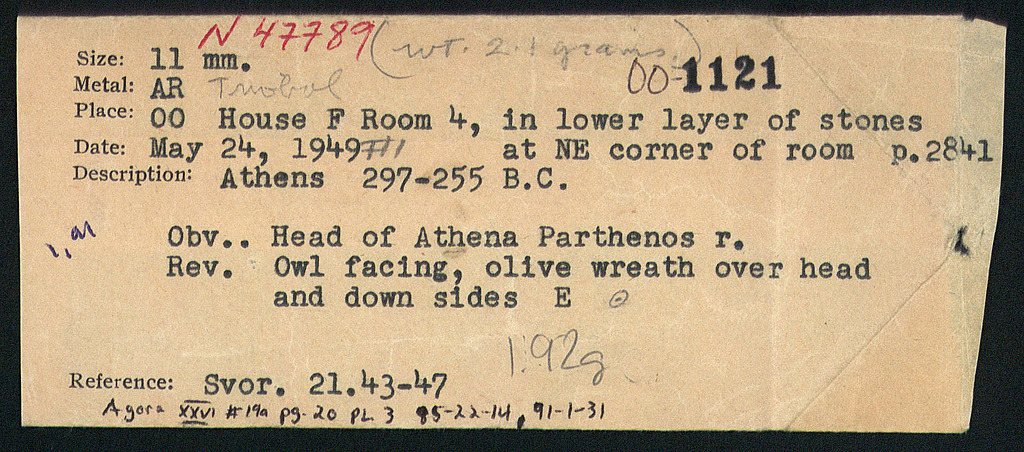 N 47789 (wt. 2.1 grams)
Size: 11 mm.
OO-1121
Metal: AR Triobol
Place: OO House F Room 4, in lower layer of stones
Date: May 24, 1949 III at NE corner of room p.2841
Description: Athens 297-255 B.C.
Obv.. Head of Athena Parthenos r.
Rev. Owl facing, olive wreath over head
and down sides E ⊙
1.92g
Reference: Svor. 21.43-47
Agora XXVI #19a pg. 20 PL 3 85-22-14, 91-1-31